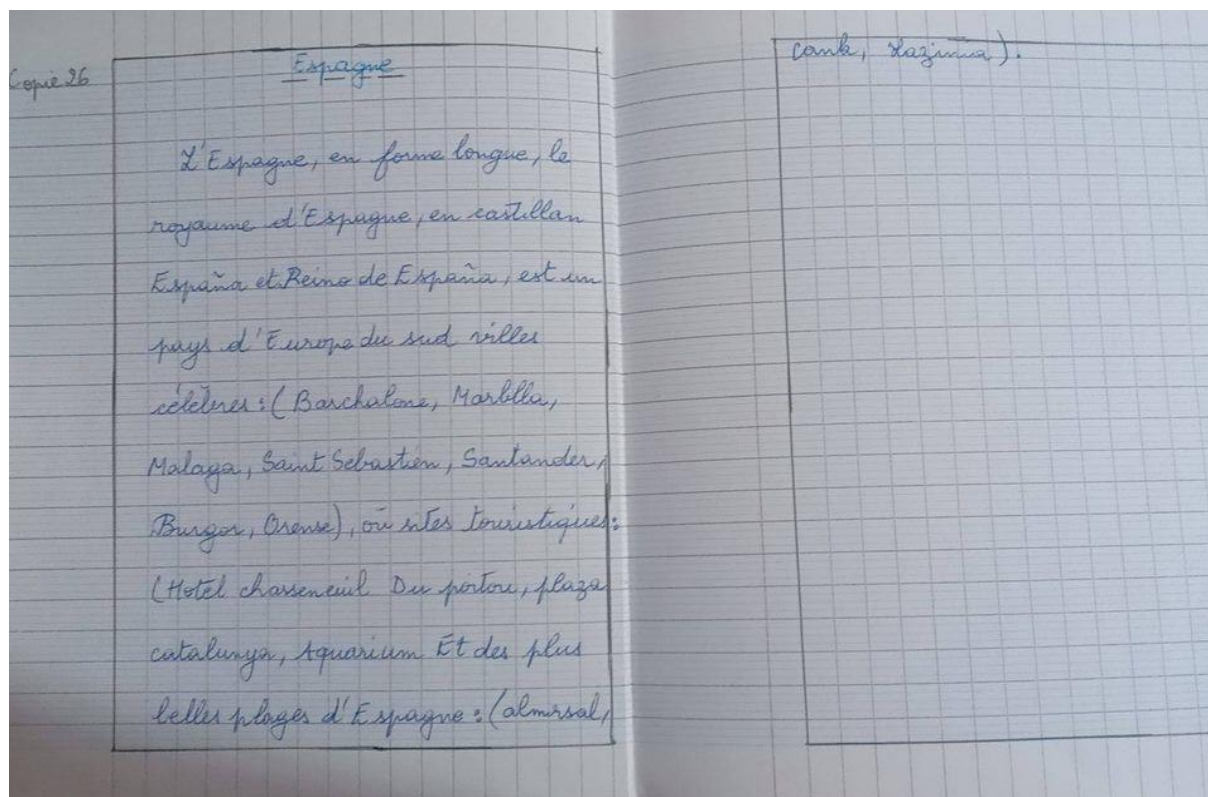 Copie 26
Espagne
L'Espagne, en forme longue, le
royaume d'Espagne, en castillan
España et Reino de España, est un
pays d'Europe du sud villes
célèbres : ( Barchalone, Marblla,
Malaga, Saint Sebastien, Santander,
Burgor, Orense), où sites touristiques :
(Hotel chasseneuil Du poitou, plaza
catalunya, Aquarium Et des plus
belles plages d'Espagne : (almirsal,